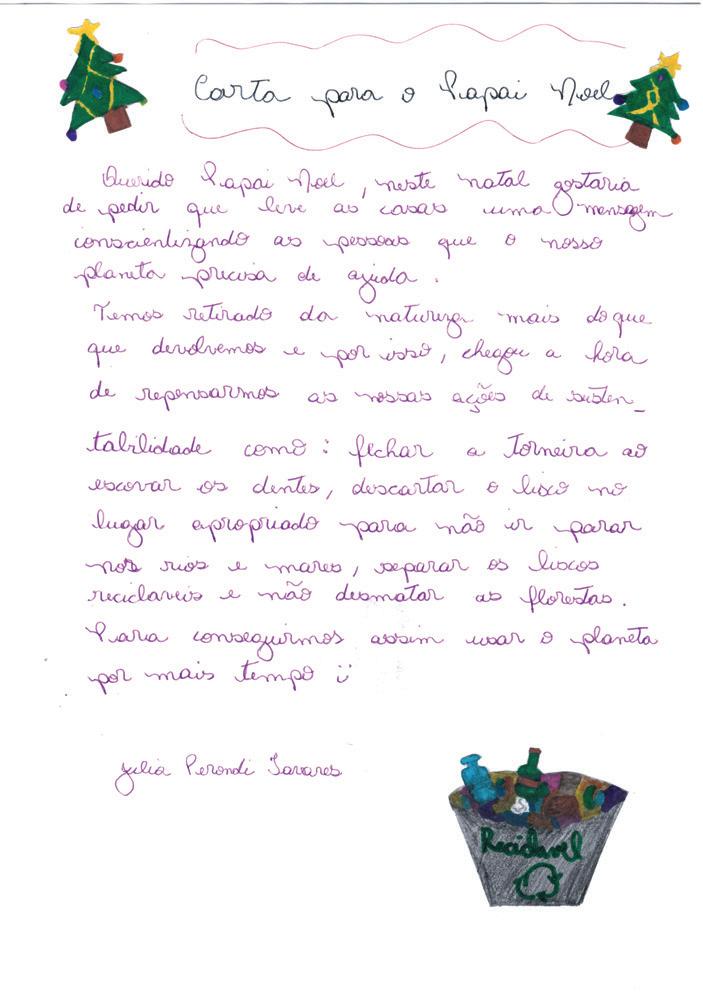 Carta para o Papai Noel
Querido Papai Noel, neste natal gostaria
de pedir que leve as casas uma mensagem
conscientizando as pessoas que o nosso
planeta precisa de ajuda.
Temos retirado da natureza mais do que
que devolvemos e por isso, chegou a hora
de repensarmos as nossas ações de susten_
tabilidade como: fechar a Torneira ao
escovar os dentes, descartar o lixo no
lugar apropriado para não ir parar
nos rios e mares, separar os lixos
reciclaveis e não desmatar as florestas.
Para conseguirmos assim usar o planeta
por mais tempo :)
Julia Perondi Tavares
Reciclavel